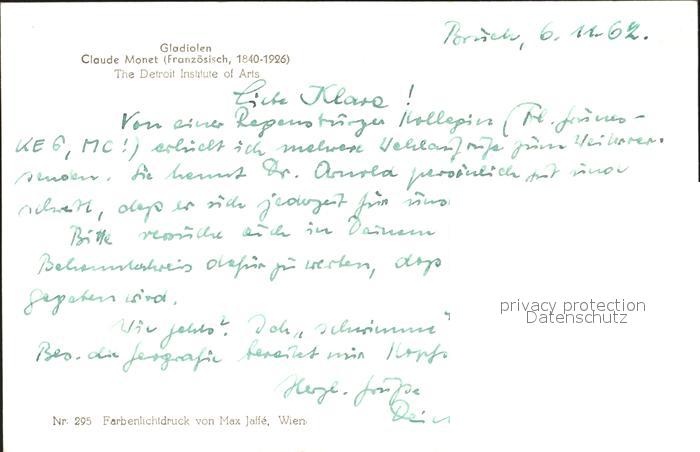 Bruck, 6. 11. 62.
Gladiolen
Claude Monet (Französisch, 1840-1926)
The Detroit Institute of Arts
Liebe Klara!
Von einer Regensburger Kollegin (Frl.
KEG, MC!) erhielt ich mehrere Wahlaufrufe zum Weiterver-
senden. Sie kennt Dr. Arnold persönlich gut und
schreibt, daß er sich jederzeit für uns
Bitte versuche auch in Deinem
Bekanntenkreis dafür zu werben, daß
gegeben wird.
Wie gehts? Ich „schwimme"
Bes. die Geografie bereitet mir Kopf
Herzl. Grüße
Dein
privacy protection
Datenschutz
Nr. 295 Farbenlichtdruck von Max Jaffé, Wien